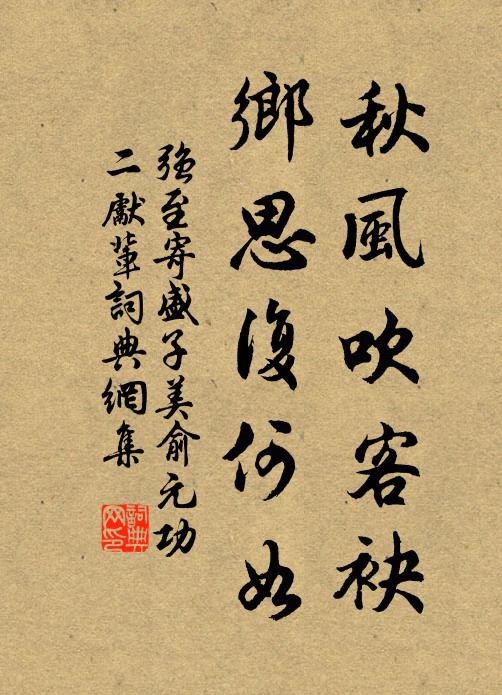 秋風吹客袂
鄉思復何如
強至寄盛子美俞元功
二獻輩詞典網集
詞典网印